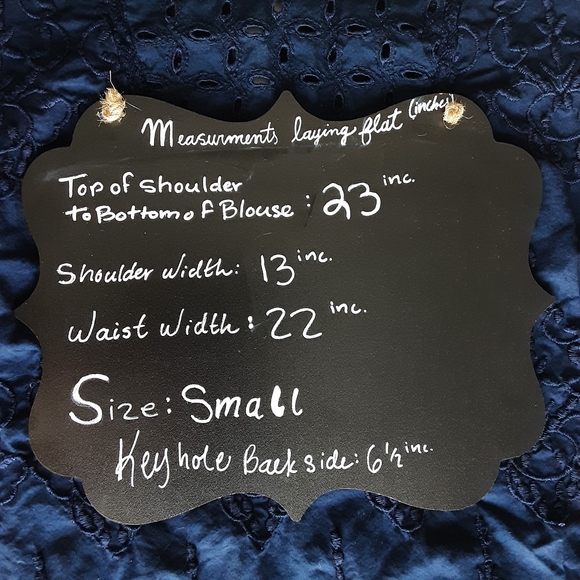 Measurments laying flat (inches)
Top of shoulder
to Bottom of Blouse : 23 inc.
Shoulder width: 13 inc.
Waist Width : 22 inc.
Size: Small
Keyhole Back side: 6 1/2 inc.